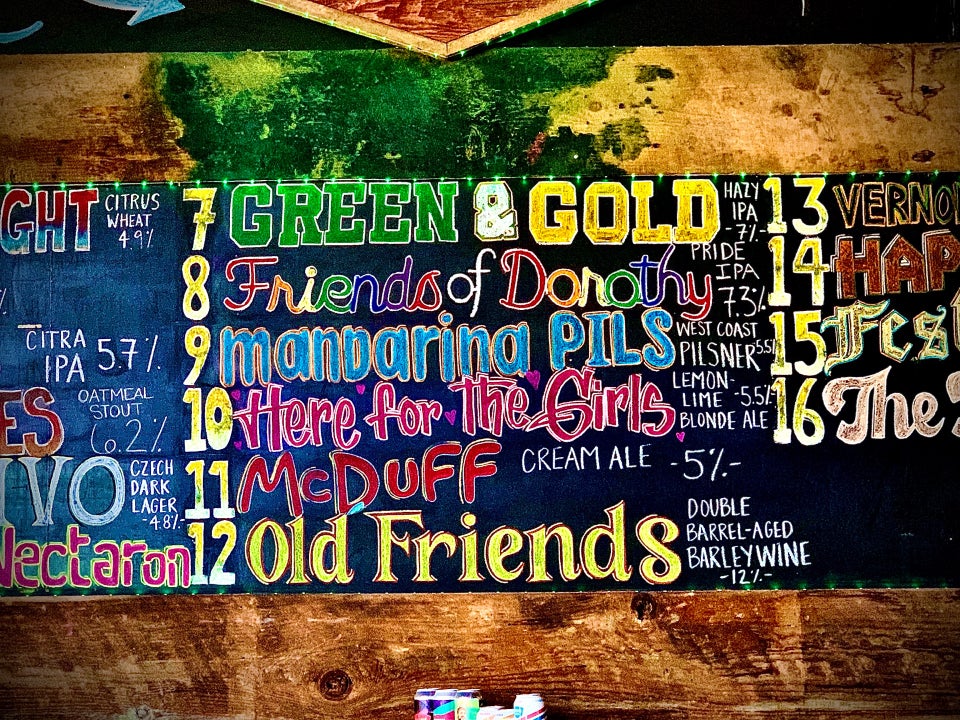 GHT CITRUS
WHEAT
4.9%
CITRA
IPA 5.7%
ES OATMEAL
STOUT
6.2%
IVO CZECH
DARK
LAGER
-4.8%-
Nectaron
7 GREEN & GOLD HAZY
IPA
-7%-
8 Friends of Dorothy PRIDE
IPA
7.3%
9 mandarina PILS WEST COAST
PILSNER 5.5%
10 Here for The Girls LEMON-
LIME -5.5%
BLONDE ALE
11 McDUFF CREAM ALE -5%-
12 Old Friends DOUBLE
BARREL-AGED
BARLEYWINE
-12%-
13 VERNO
14 HAP
15 Fest
16 The